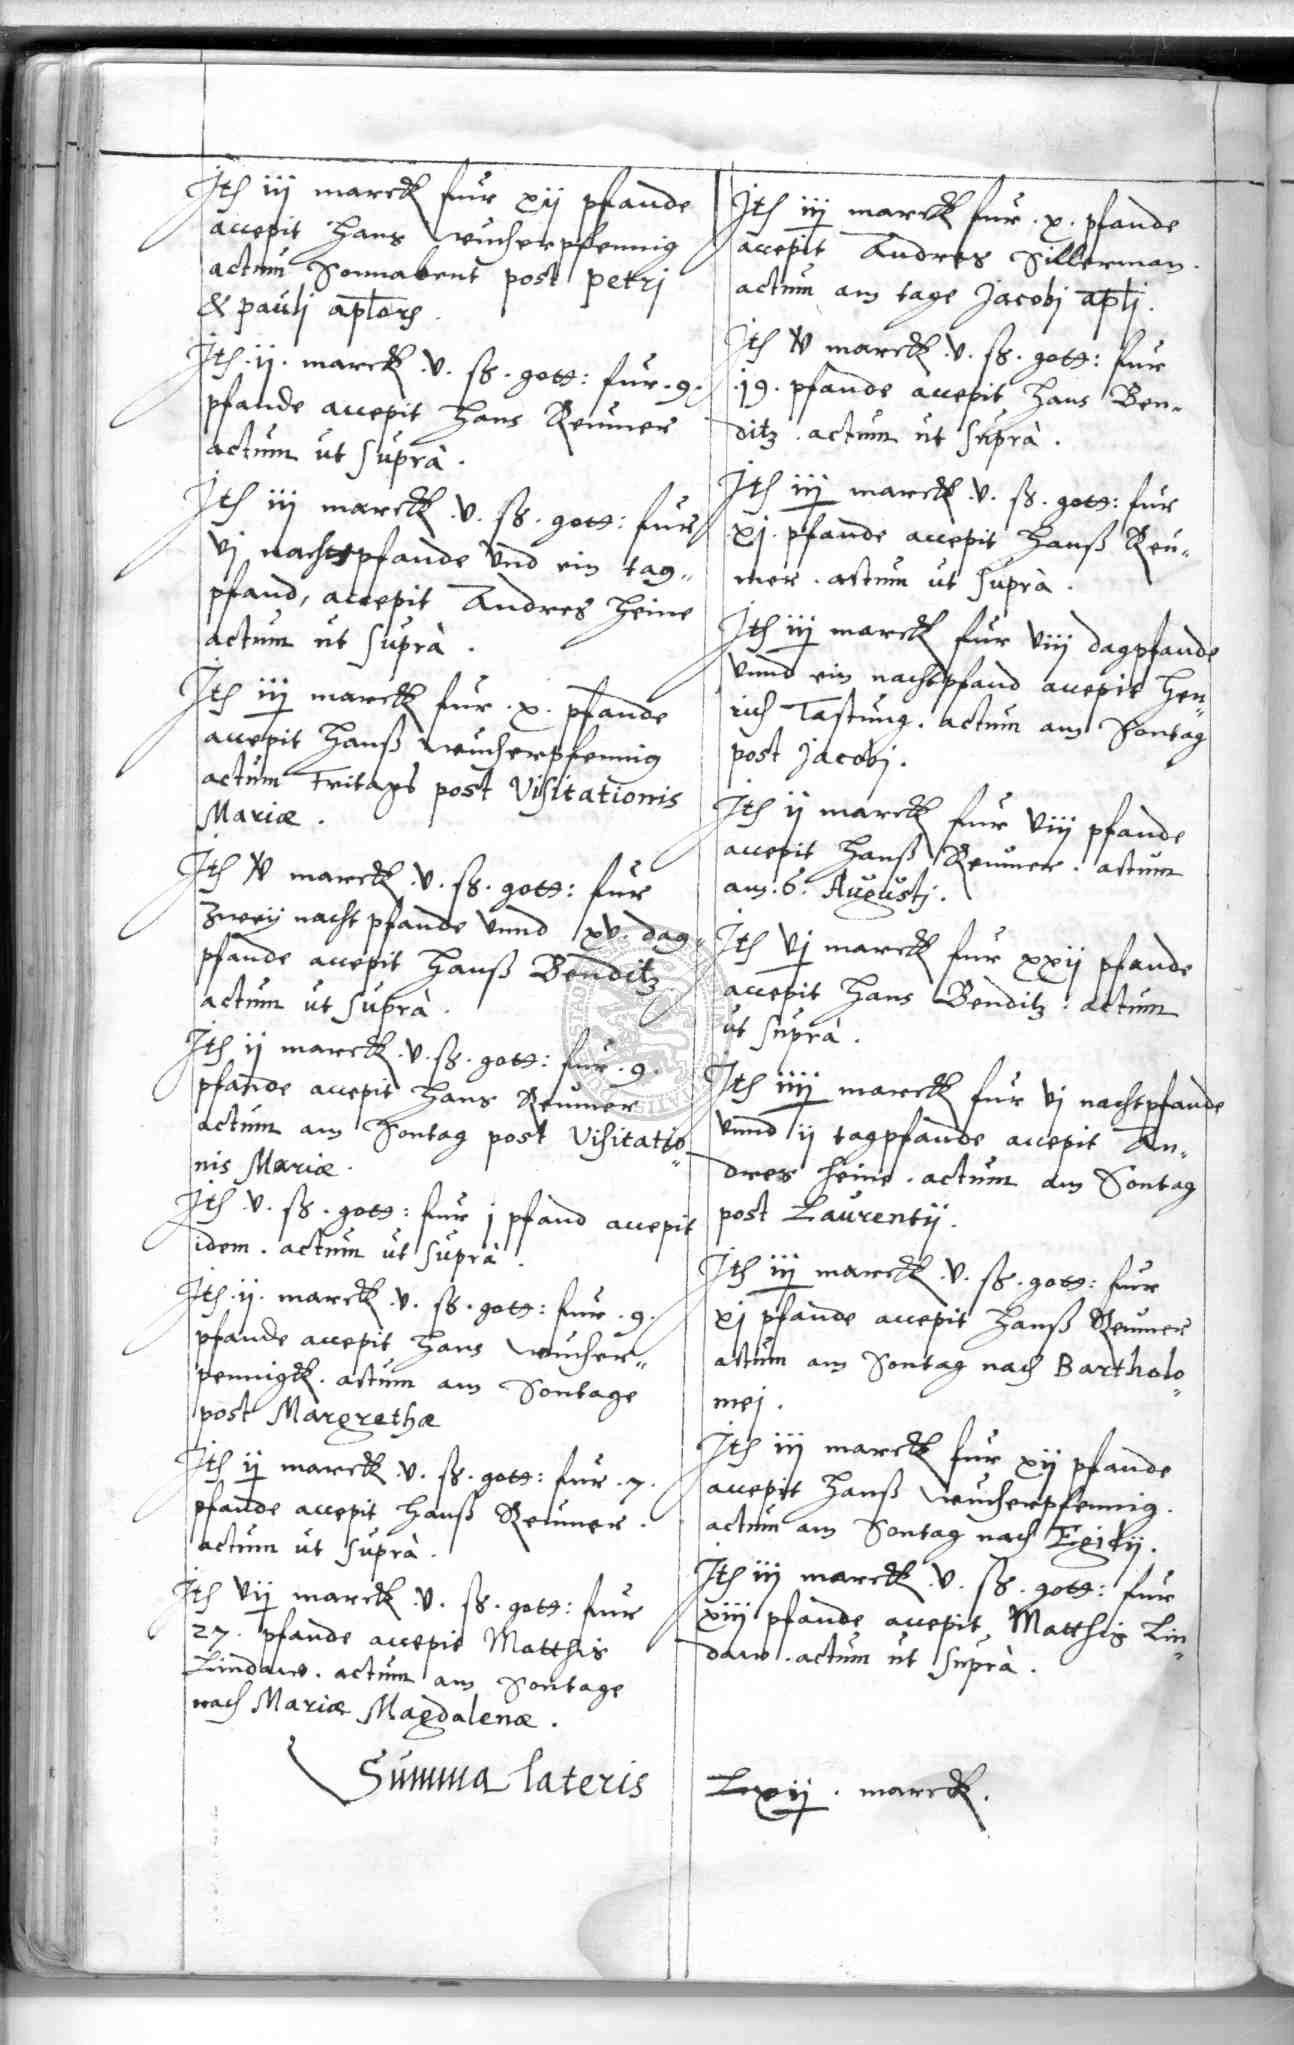 Jth iij marck fur xij pfande
accepit Hans wucherpfennig
actum Sonnabent post Petri
& pauli aplors.
Jth .ij. marck .v. ß. gott: fur .9.
pfande accepit Hans Reumer
actum ut suprà.
Jth iij marck .v. ß. gott: fur
vj nachtpfande vnd ein tag„
pfand, accepit Andres Heine
actum ut suprà.
Jth iij marck fur .x. pfande
accepit Hanß wucherpfennig
actum Fritags post Visitationis
Mariæ.
Jth marck .v. ß. gott: fur
zweij nacht pfande vnnd xv. dag„
pfande accepit Hanß Benditz
actum ut suprà.
Jth ij marck .v. ß. gott: fur .9.
pfande accepit Hans Reumer
actum am Sontag post Visitatio„
nis Mariæ.
Jth .v. ß. gott: fur j pfand accepit
idem. actum ut suprà.
Jth .ij. marck .v. ß. gott: fur .9.
pfande accepit Hans wucher„
pennigk. actum am Sontage
post Margrethæ
Jth ij marck .v. ß. gott: fur .7.
pfande accepit Hanß Reumer.
actum ut suprà.
Jth vij marck .v. ß. gott: fur
27. pfande accepit Matthis
Lindaw. actum am Sontage
nach Mariæ Magdalenæ.
Jth iij marck fur .x. pfande
accepit Andres Sillerman.
actum am tage Jacobj aplj.
Jth marck .v. ß. gott: fur
.19. pfande accepit Hans Ben„
ditz. actum ut suprà.
Jth iij marck .v. ß. gott: fur
xj. pfande accepit Hanß Reu„
mer. actum ut suprà.
Jth iij marck fur viij dagpfande
vnnd ein nachtpfand accepit Hen„
rich Tastung. actum am Sontag
post Jacobj.
Jth ij marck fur viij pfande
accepit Hanß Reumer. actum
am .6. Augustj.
Jth vj marck fur xxij pfande
accepit Hans Benditz. actum
ut suprà.
Jth iiij marck fur vj nachtpfande
vnnd ij tagpfande accepit An„
dres Heine. actum am Sontag
post Laurentij.
Jth iij marck .v. ß. gott: fur
xj pfande accepit Hanß Reumer
actum am Sontag nach Bartholo„
mej.
Jth iij marck fur xij pfande
accepit Hanß wucherpfennig.
actum am Sontag nach Egidij.
Jth iij marck .v. ß. gott: fur
xiij pfande accepit Matthis Lin„
daw. actum ut suprà.
Summa lateris Lxij. marck.